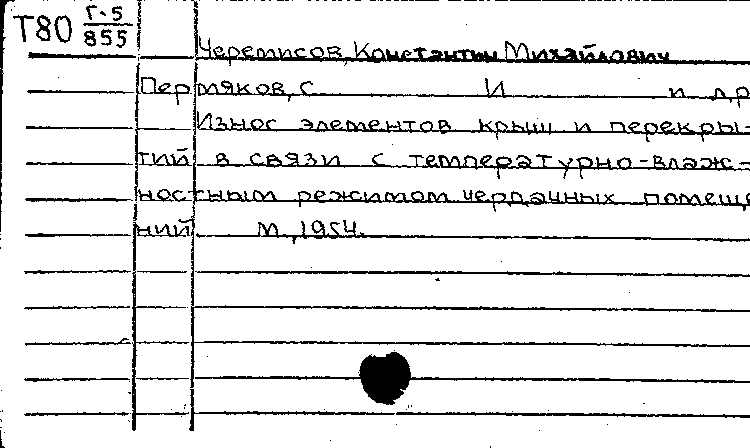 Т80 Г·5
855
Черемисов, Константин Михайлович
Пермяков, С И и др
Износ элементов крыш и перекры-
тий в связи с температурно-влаж-
ностным режимом чердачных помеще
ний. М., 1954.